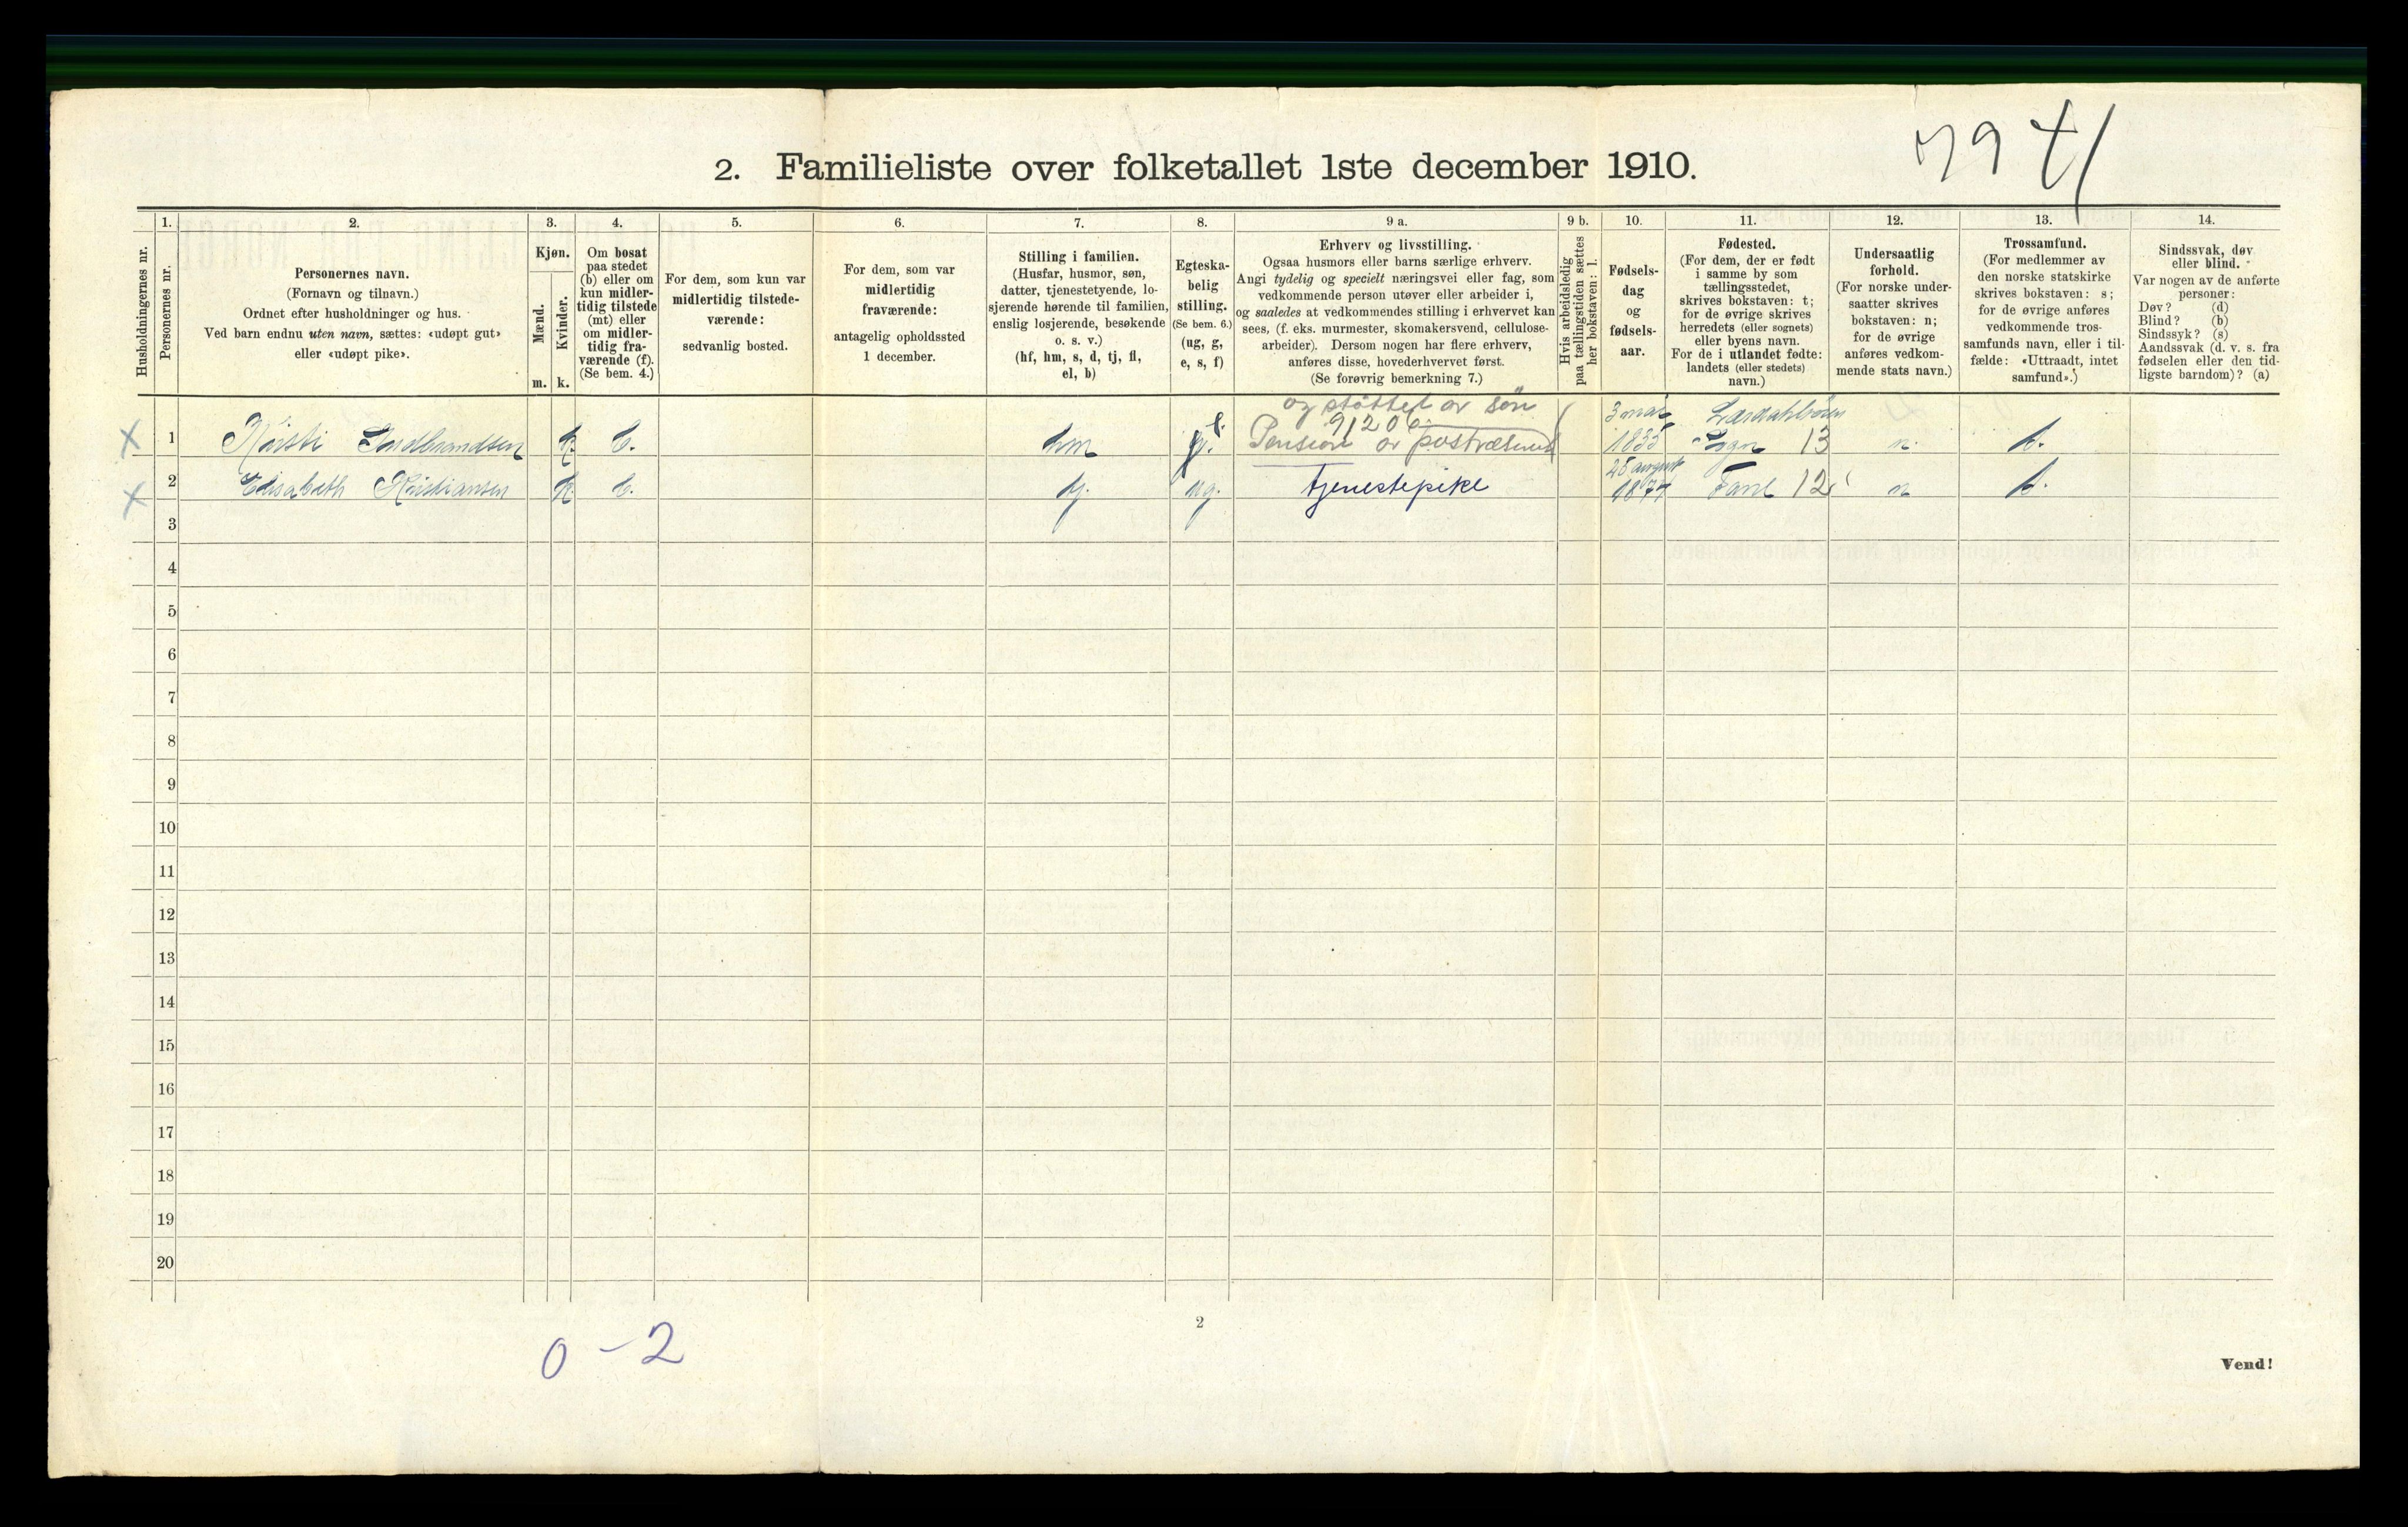 2. Familieliste over folketallet 1ste december 1910.
1.
2.
3.
4.
5.
6.
7.
8.
9 a.
9 b.
10.
11.
12.
13.
14.
Husholdningernes nr.
Personernes nr.
Personernes navn.
(Fornavn og tilnavn.)
Ordnet efter husholdninger og hus.
Ved barn endnu uten navn, sættes: «udøpt gut»
eller «udøpt pike».
Kjøn.
Mænd.
Kvinder.
m. k.
Om bosat
paa stedet
(b) eller om
kun midler-
tidig tilstede
(mt) eller
om midler-
tidig fra-
værende (f).
(Se bem. 4.)
For dem, som kun var
midlertidig tilstede-
værende:
sedvanlig bosted.
For dem, som var
midlertidig
fraværende:
antagelig opholdssted
1 december.
Stilling i familien.
(Husfar, husmor, søn,
datter, tjenestetyende, lo-
sjerende hørende til familien,
enslig losjerende, besøkende
o. s. v.)
(hf, hm, s, d, tj, fl,
el, b)
Egteska-
belig
stilling.
(Se bem. 6.)
(ug, g,
e, s, f)
Erhverv og livsstilling.
Ogsaa husmors eller barns særlige erhverv.
Angi tydelig og specielt næringsvei eller fag, som
vedkommende person utøver eller arbeider i,
og saaledes at vedkommendes stilling i erhvervet kan
sees, (f. eks. murmester, skomakersvend, cellulose-
arbeider). Dersom nogen har flere erhverv,
anføres disse, hovederhvervet først.
(Se forøvrig bemerkning 7.)
Hvis arbeidsledig
paa tællingstiden sættes
her bokstaven: l.
Fødsels-
dag
og
fødsels-
aar.
Fødested.
(For dem, der er født
i samme by som
tællingsstedet,
skrives bokstaven: t;
for de øvrige skrives
herredets (eller sognets)
eller byens navn.
For de i utlandet fødte:
landets (eller stedets)
navn.)
Undersaatlig
forhold.
(For norske under-
saatter skrives
bokstaven: n;
for de øvrige
anføres vedkom-
mende stats navn.)
Trossamfund.
(For medlemmer av
den norske statskirke
skrives bokstaven: s;
for de øvrige anføres
vedkommende tros-
samfunds navn, eller i til-
fælde: «Uttraadt, intet
samfund».)
Sindssvak, døv
eller blind.
Var nogen av de anførte
personer:
Døv? (d)
Blind? (b)
Sindssyk? (s)
Aandssvak (d. v. s. fra
fødselen eller den tid-
ligste barndom)? (a)
og støttet av søn
X 1 k. b. hm e. Pension av 13 n. s.
X 2 Elisabeth Kristiansen k. b. tj. ug. tjenestepike 25 august Fane 12 n s.
3
4
5
6
7
8
9
10
11
12
13
14
15
16
17
18
19
20
0 - 2
2
Vend!